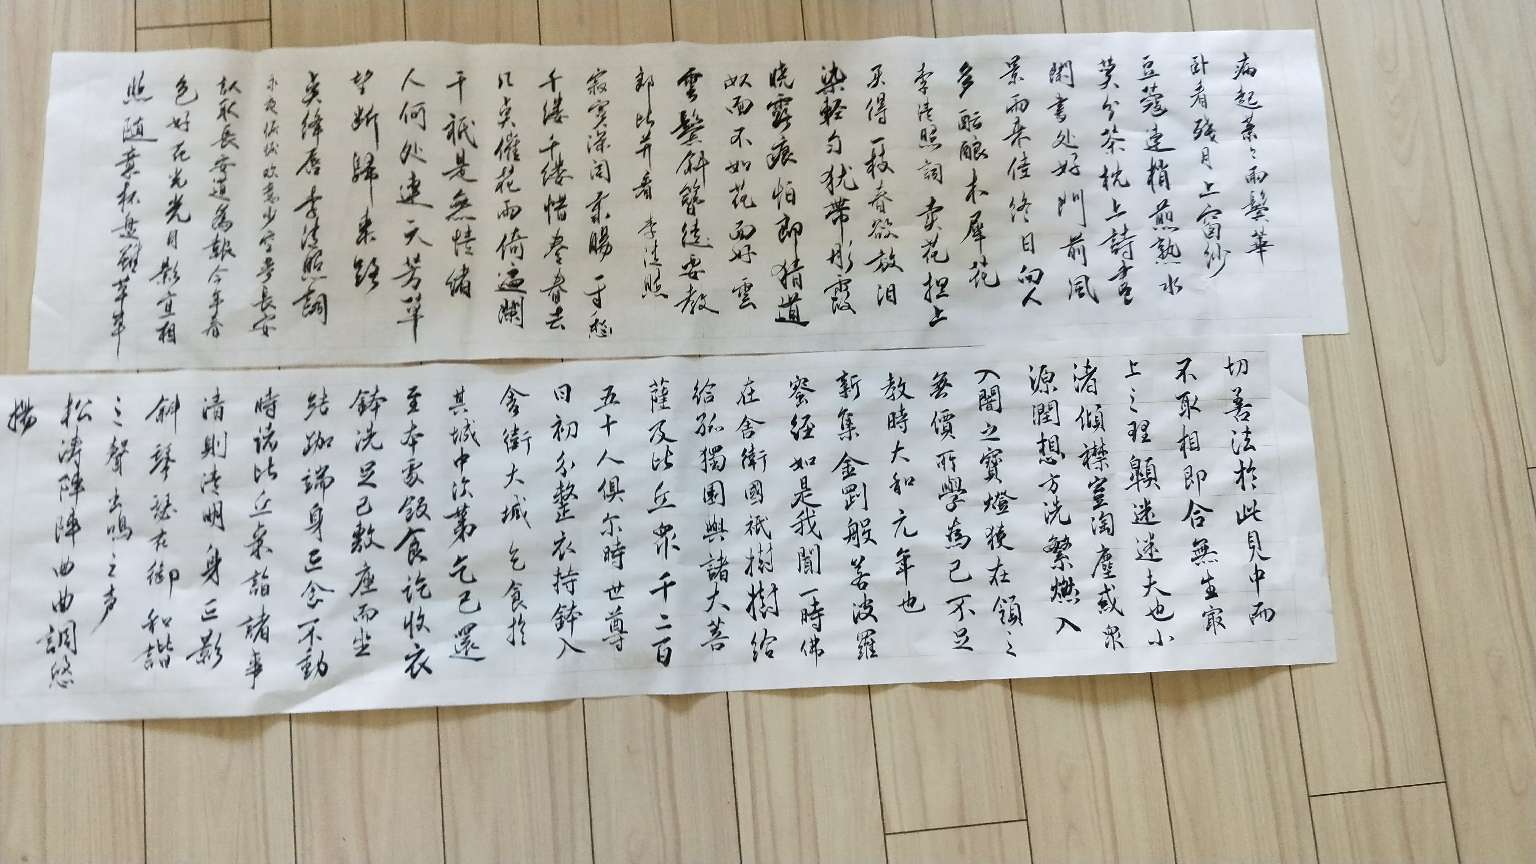 病起萧〻两鬓華
卧看残月上窗纱
豆蔻连梢煎熟水
莫分茶枕上詩書
閑書处好门前风
景雨来佳终日向人
多酝酿木犀花
李清照詞卖花担上
买得一枝春欲放泪
染轻匀犹带彤霞
晓露痕怕郎猜道
奴面不如花面好雲
雲鬓斜簪徒要教
郎比并看 李清照
寂寞深闺柔腸一寸愁
千缕千缕惜春春去
几点催花雨倚遍闌
干祇是無情绪
人何处连天芳草
望断歸来路
点绛唇李清照詞
永夜恹恹欢意少空梦長安
認取長安道為報今年春
色好花光月影宜相
照随意杯盘雖草草
切善法於此見中而
不取相即合無生取
上之理顯迷迷夫也小
渚傾襟室淘塵或眾
源潤想方洗繁燃入
入闇之寶燈狭在領之
無價所學為己不足
教時大和元年也
新集金罰般若波羅
蜜經如是我聞一時佛
在舍衛國祇樹樹給
給孤獨園與諸大菩
薩及比丘眾千二百
五十人俱尔時世尊
日初分整衣持鉢入
舍衛大城乞食於
其城中次第乞已還
至本處飯食訖收衣
鉢洗足已敷座而坐
結跏端身正念不動
時諸比丘来詣諸事
清則清明身正影
斜琴瑟在御和諧
之聲出鳴之声
松涛陣陣曲曲調悠
揚